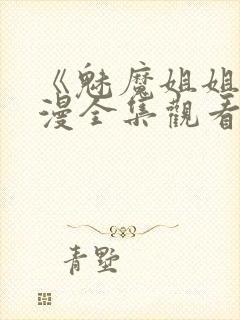 《魅魔姐姐
漫全集觀看
青墅